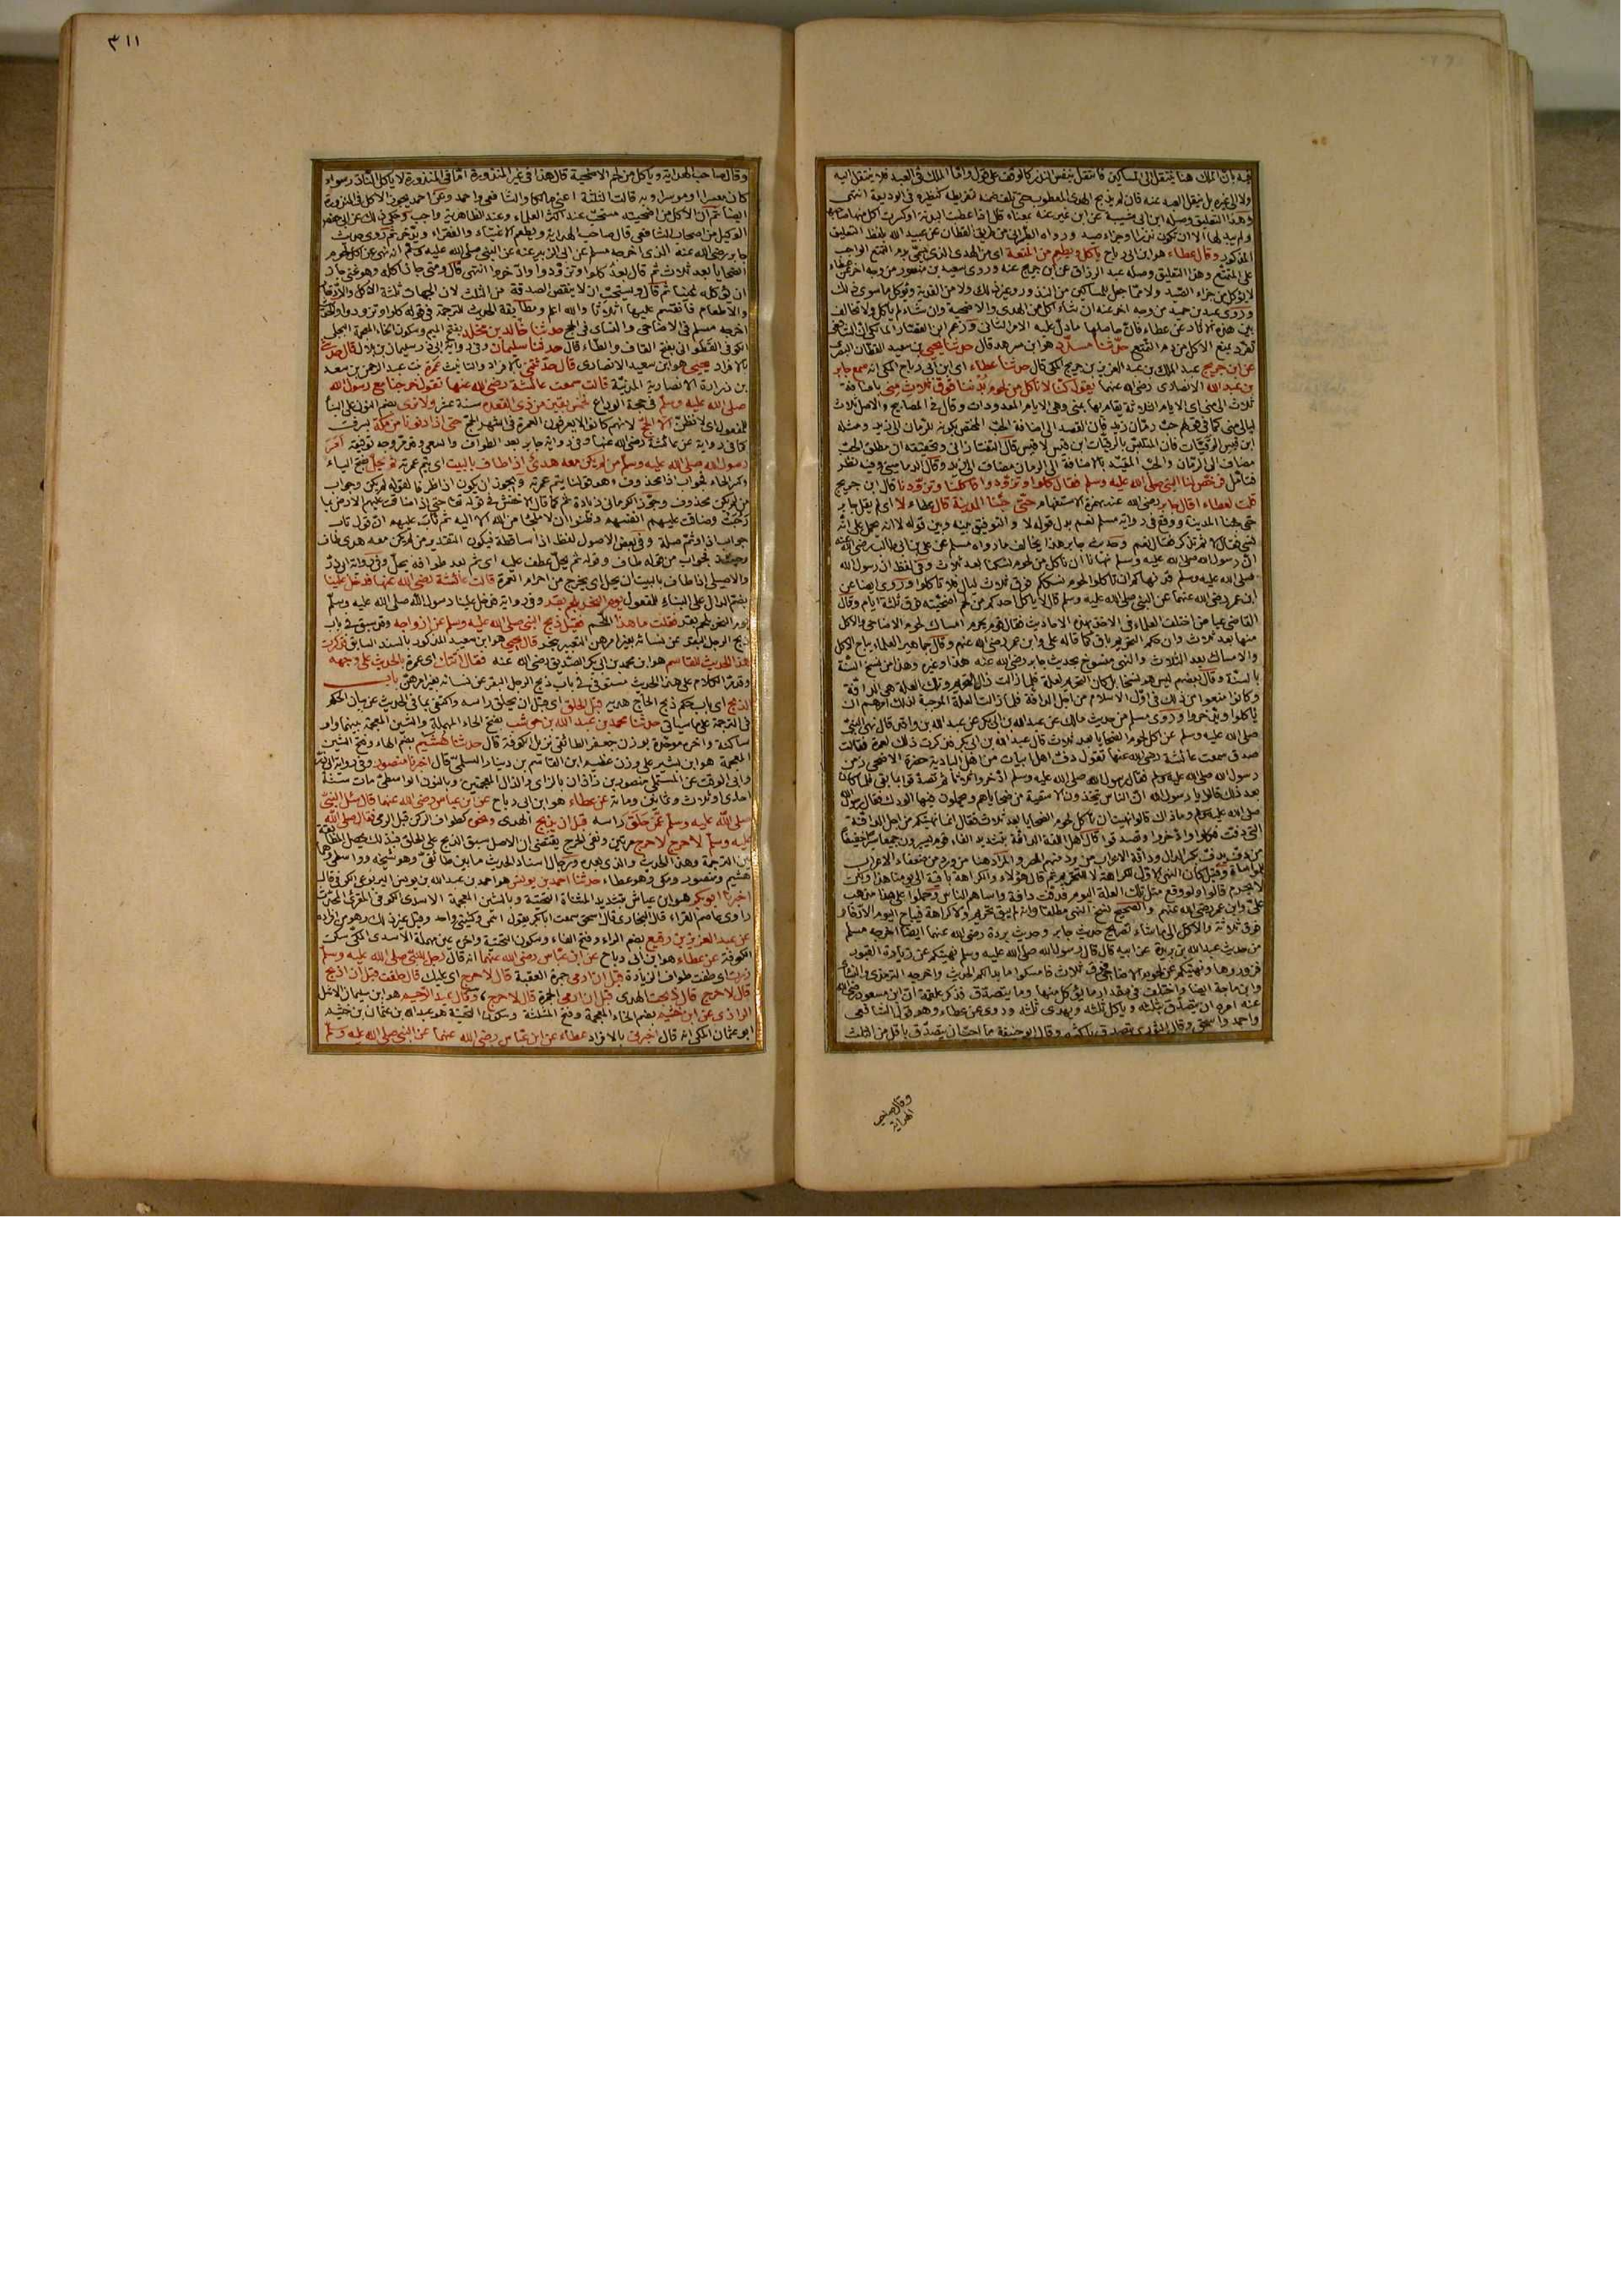 فيه بان الملك هنا ينتقل الى المساكين فانتقل بنفس النذر كالوقف على قول واما الملك في العبد فلا ينتقل اليه
ولا الى غيره بل ينفك العبد عنه فان لم يذبح الهدى المعطوب حتى تلف ضمنه لتفريطه كنظيره في الوديعة انتهى
وهذا التعليق وصله ابن ابي شيبة عن ابن نمير عنه بمعناه قال اذا عطبت البدنة او كسرت اكل منها صاحبها
ولم يبدلها الا ان تكون نذرا او جزاء صيد ورواه الطبراني من طريق القطان عن عبيد الله بلفظ التعليق
المذكور وقال عطاء هو ابن ابي رباح ياكل ويطعم من المتعة اى من الهدى الذى يسمى بدم التمتع الواجب
على المتمتع وهذا التعليق وصله عبد الرزاق عن ابن جريج عنه وروى سعيد بن منصور من وجه اخر عن عطاء
لا يؤكل من جزاء الصيد ولا مما جعل للمساكين من النذر وغير ذلك ولا من الفدية ويؤكل ما سوى ذلك
وروى عبد بن حميد من وجه اخر عنه ان شاء اكل من الهدى والاضحية وان شاء لم ياكل ولا تخالف
بين هذه الاثار عن عطاء فان حاصلها ما دل عليه الاثر الثاني وزعم ابن القصار المالكى ان الشافعى
تفرد بمنع الاكل من دم التمتع حدثنا مسدد هو ابن مسرهد قال حدثنا يحيى بن سعيد القطان البصرى
عن ابن جريج عبد الملك بن عبد العزيز بن جريج المكى قال حدثنا عطاء اى ابن ابي رباح المكى انه سمع جابر
بن عبد الله الانصارى رضى الله عنهما يقول كنا لا ناكل من لحوم بدننا فوق ثلاث منى باضافة
ثلاث الى منى اى الايام الثلاثة يقام بها بمنى وهى الايام المعدودات وقال في المصابيح والاصل ثلاث
ليالى منى كما في قولهم حب رمان زيد فان القصد الى اضافة الحب المختص بكونه للرمان الى زيد ومثله
ابن قيس الرقيات فان المتلبس بالرقيات ابن قيس لا قيس قال التفتازانى وتحقيقه ان مطلق الحب
مضاف الى الرمان والحب المقيد بالاضافة الى الرمان مضاف الى زيد وقال الدمامينى وفيه نظر
فتامل فرخص لنا النبى صلى الله عليه وسلم فقال كلوا وتزودوا فاكلنا وتزودنا قال ابن جريج
قلت لعطاء اقال جابر رضى الله عنه بهمزة الاستفهام حتى جئنا المدينة قال عطاء لا اى لم يقل جابر
حتى جئنا المدينة ووقع في رواية مسلم نعم بدل قوله لا والتوفيق بينه وبين قوله لا انه يحمل على انه
نسى فقال لا ثم تذكر فقال نعم وحديث جابر هذا يخالف ما رواه مسلم عن على بن ابي طالب رضى الله عنه
ان رسول الله صلى الله عليه وسلم نهانا ان ناكل من لحوم نسكنا بعد ثلاث وفي لفظ ان رسول الله
صلى الله عليه وسلم قد نهاكم ان تاكلوا لحوم نسككم فوق ثلاث ليال فلا تاكلوا وروى ايضا عن
ابن عمر رضى الله عنهما عن النبى صلى الله عليه وسلم قال لا ياكل احدكم من لحم اضحيته فوق ثلاثة ايام وقال
القاضى عياض اختلف العلماء في الاخذ بهذه الاحاديث فقال قوم يحرم امساك لحوم الاضاحى والاكل
منها بعد ثلاث وان حكم التحريم باق كما قاله على وابن عمر رضى الله عنهم وقال جماهير العلماء يباح الاكل
والامساك بعد الثلاث والنهى منسوخ بحديث جابر رضى الله عنه هذا وغيره وهذا من نسخ السنة
بالسنة وقال بعضهم ليس هو نسخا بل كان التحريم لعلة فلما زالت زال التحريم وتلك العلة هى الدافة
وكانوا منعوا من ذلك في اول الاسلام من اجل الدافة فلما زالت العلة الموجبة لذلك امرهم ان
ياكلوا ويدخروا وروى مسلم من حديث مالك عن عبد الله بن ابي بكر عن عبد الله بن واقد قال نهى النبى
صلى الله عليه وسلم عن اكل لحوم الضحايا بعد ثلاث قال عبد الله بن ابي بكر فذكرت ذلك لعمرة فقالت
صدق سمعت عائشة رضى الله عنها تقول دف اهل ابيات من اهل البادية حضرة الاضحى زمن
رسول الله صلى الله عليه وسلم فقال رسول الله صلى الله عليه وسلم ادخروا ثلاثا ثم تصدقوا بما بقى فلما كان
بعد ذلك قالوا يا رسول الله ان الناس يتخذون الاسقية من ضحاياهم ويحملون فيها الودك فقال رسول الله
صلى الله عليه وسلم وما ذاك قالوا نهيت ان تاكل لحوم الضحايا بعد ثلاث فقال انما نهيتكم من اجل الدافة
التى دفت فكلوا وادخروا وتصدقوا قال اهل اللغة الدافة بتشديد الفاء قوم يسيرون جميعا سيرا خفيفا
من دف يدف بكسر الدال ودافة الاعراب من يرد منهم المصر والمراد هنا من ورد من ضعفاء الاعراب
للمواساة وقيل كان النهى الاول للكراهة لا للتحريم قال هؤلاء والكراهة باقية الى يومنا هذا ولكن
لا يحرم قالوا ولو وقع مثل تلك العلة اليوم فدفت دافة واساهم الناس وحملوا على هذا مذهب
على وابن عمر رضى الله عنهم والصحيح نسخ النهى مطلقا وانه لم يبق تحريم ولا كراهة فيباح اليوم الادخار
فوق ثلاثة والاكل الى ما شاء لصريح حديث جابر وحديث بريدة رضى الله عنهما ايضا اخرجه مسلم
من حديث عبد الله بن بريدة عن ابيه قال قال رسول الله صلى الله عليه وسلم نهيتكم عن زيارة القبور
فزوروها ونهيتكم عن لحوم الاضاحى فوق ثلاث فامسكوا ما بدا لكم الحديث واخرجه الترمذى والنسائى
وابن ماجة ايضا واختلف في مقدار ما يؤكل منها وما يتصدق فذكر علقمة ان ابن مسعود رضى الله
عنه امره ان يتصدق بثلثه وياكل ثلثه ويهدى ثلثه وروى عن عطاء وهو قول الشافعى
واحمد واسحق وقال الثورى يتصدق باكثره وقال ابو حنيفة ما احب ان يتصدق باقل من الثلث
وقال صاحب
الهداية
٣١١
وقال صاحب الهداية وياكل من لحم الاضحية قال هذا في غير المنذورة اما في المنذورة لا ياكل الناذر سواء
كان معسرا او موسرا وبه قالت الثلاثة اعنى مالكا والشافعى واحمد وعن احمد يجوز الاكل في المنذورة
ايضا ثم ان الاكل من اضحيته مستحب عند اكثر العلماء وعند الظاهرية واجب وحكى ذلك عن ابي حفص
الوكيل من اصحاب الشافعى قال صاحب الهداية ويطعم الاغنياء والفقراء ويدخر ثم روى حديث
جابر رضى الله عنه الذى اخرجه مسلم عن ابي الزبير عنه عن النبى صلى الله عليه وسلم انه نهى عن اكل لحوم
الضحايا بعد ثلاث ثم قال بعد كلوا وتزودوا وادخروا انتهى قال ومتى جاز اكله وهو غنى جاز
ان يؤكله غنيا ثم قال ويستحب ان لا ينقص الصدقة من الثلث لان الجهات ثلاثة الاكل والادخار
والاطعام فانقسم عليها اثلاثا والله اعلم ومطابقة الحديث للترجمة في قوله كلوا وتزودوا والحديث
اخرجه مسلم في الاضاحى والنسائى في الحج حدثنا خالد بن مخلد بفتح الميم وسكون الخاء المعجمة البجلى
الكوفى القطوانى بفتح القاف والطاء قال حدثنا سليمان وفي رواية ابي ذر سليمان بن بلال قال حدثنى
بالافراد يحيى هو ابن سعيد الانصارى قال حدثتنى بالافراد والتانيث عمرة بنت عبد الرحمن بن سعد
بن زرارة الانصارية المدنية قالت سمعت عائشة رضى الله عنها تقول خرجنا مع رسول الله
صلى الله عليه وسلم في حجة الوداع لخمس بقين من ذى القعدة سنة عشر ولا نرى بضم النون على البناء
للمفعول اى لا نظن الا الحج لانهم كانوا لا يعرفون العمرة في اشهر الحج حتى اذا دنونا من مكة بسرف
كما في رواية عن عائشة رضى الله عنها وفي رواية جابر بعد الطواف والسعى وطريق وجه توفيقه امر
رسول الله صلى الله عليه وسلم من لم يكن معه هدى اذا طاف بالبيت اى يتم عمرته ثم يحل بفتح الياء
وكسر الحاء فجواب اذا محذوف وهو قولنا يتم عمرته ويجوز ان يكون اذا ظرفا لقوله لم يكن وجواب
من لم يكن محذوف وجوز الكرمانى زيادة ثم كما قال الاخفش في قوله تعالى حتى اذا ضاقت عليهم الارض بما
رحبت وضاقت عليهم انفسهم وظنوا ان لا ملجأ من الله الا اليه ثم تاب عليهم ان قوله تاب
جواب اذا وثم صلة وفي بعض الاصول لفظ اذا ساقطة فيكون التقدير من لم يكن معه هدى طاف
وحينئذ فجواب من قوله طاف وقوله ثم يحل عطف عليه اى ثم بعد طوافه يحل وفي رواية ابي ذر
والاصيلى اذا طاف بالبيت ان يحل اى يخرج من احرام العمرة قالت عائشة رضى الله عنها فدخل علينا
بضم الدال على البناء للمفعول يوم النحر بلحم بقر وفي رواية فدخل علينا رسول الله صلى الله عليه وسلم
يوم النحر بلحم بقر فقلت ما هذا اللحم فقيل ذبح النبى صلى الله عليه وسلم عن ازواجه وقد سبق في باب
ذبح الرجل البقر عن نسائه بغير امرهن التعبير بنحر قال يحيى هو ابن سعيد المذكور بالسند السابق فذكرت
هذا الحديث للقاسم هو ابن محمد بن ابي بكر الصديق رضى الله عنه فقال اتتك اى عمرة بالحديث على وجهه
وقد مر الكلام على هذا الحديث مستوفى في باب ذبح الرجل البقر عن نسائه بغير امرهن باب
الذبح اى باب حكم ذبح الحاج هديه قبل الحلق اى قبل ان يحلق راسه واكتفى بما في الحديث عن بيان الحكم
في الترجمة على ما سياتى حدثنا محمد بن عبد الله بن حوشب بفتح الحاء المهملة والشين المعجمة بينهما واو
ساكنة واخره موحدة بوزن جعفر الطائفى نزيل الكوفة قال حدثنا هشيم بضم الهاء وفتح الشين
المعجمة هو ابن بشير على وزن عظيم ابن القاسم بن دينار السلمى قال اخبرنا منصور وفي رواية ابي ذر
وابي الوقت عن المستملى منصور بن زاذان بالزاى والذال المعجمتين وبالنون الواسطى مات سنة
احدى وثلاث وثمانين ومائة عن عطاء هو ابن ابي رباح عن ابن عباس رضى الله عنهما قال سئل النبى
صلى الله عليه وسلم عمن حلق راسه قبل ان يذبح الهدى ونحوه كطواف الركن قبل الرمى فقال صلى الله
عليه وسلم لا حرج لا حرج مرتين ونفى الحرج يقتضى ان الاصل سبق الذبح على الحلق فبذلك تحصل المطابقة
بين الترجمة وهذا الحديث والذى بعده ورجال اسناد الحديث ما بين طائفى وهو شيخه وواسطى وهما
هشيم ومنصور ومكى وهو عطاء حدثنا احمد بن يونس هو احمد بن عبد الله بن يونس اليربوعى الكوفى قال
اخبرنا ابو بكر هو ابن عياش بتشديد المثناة التحتية وبالشين المعجمة الاسدى الكوفى المقرئ المحدث
راوى عاصم القراء قال البخارى قال اسحق سمعت ابا بكر يقول اسمى وكنيتى واحد وقيل غير ذلك وهو من افراده
عن عبد العزيز بن رفيع بضم الراء وفتح الفاء وسكون التحتية واخره عين مهملة الاسدى المكى سكن
الكوفة عن عطاء هو ابن ابي رباح عن ابن عباس رضى الله عنهما انه قال قال رجل للنبى صلى الله عليه وسلم
زرت اى طفت طواف الزيارة قبل ان ارمى جمرة العقبة قال لا حرج اى عليك قال حلقت قبل ان اذبح
قال لا حرج قال ذبحت الهدى قبل ان ارمى الجمرة قال لا حرج وقال عبد الرحيم هو ابن سليمان الاشل
الرازى عن ابن خثيم بضم الخاء المعجمة وفتح المثلثة وسكون التحتية هو عبد الله بن عثمان بن خثيم
ابو عثمان المكى انه قال اخبرنى بالافراد عطاء عن ابن عباس رضى الله عنهما عن النبى صلى الله عليه وسلم